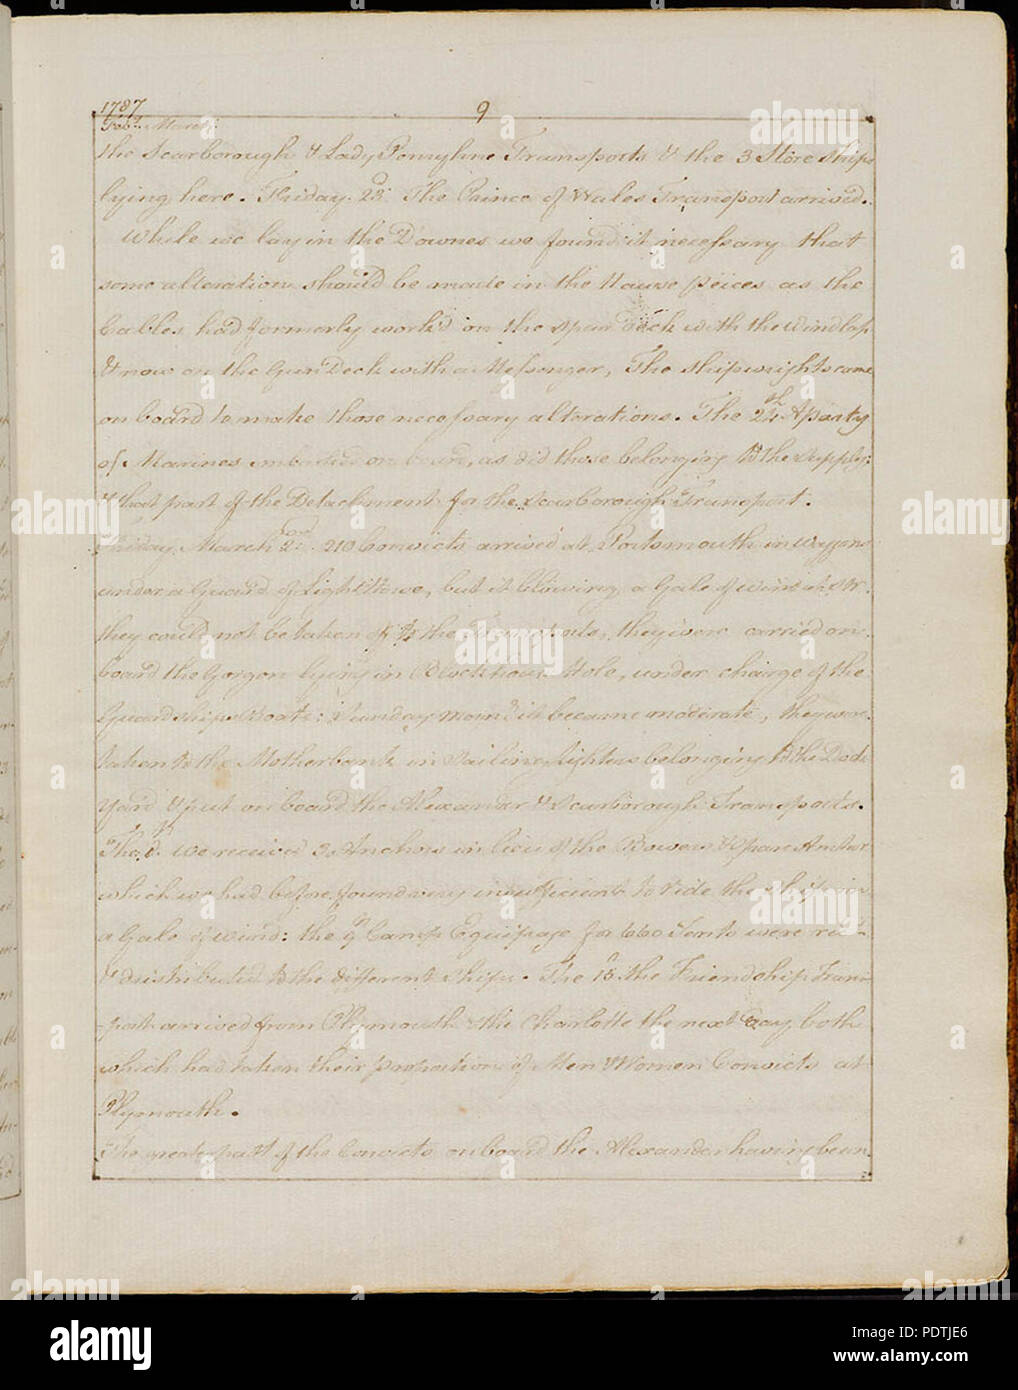 1787
9
Feb.y March.
the Scarborough & Lady Penryhne Transports & the 3 Store ships
lying here. Friday 23.d The Prince of Wales Transport arrived.
While we lay in the Downes we found it necessary that
some alteration should be made in the Hause peices as the
Cables had formerly work'd on the spar deck with the Windlass
& now on the Gun Deck with a Messenger, The Shipwrights came
on board to make those necessary alterations. The 24.th A party
of Marines embarked on board, as did those belonging to the Supply:
& that part of the Detachment for the Scarborough Transport.
Friday March 2.nd 210 Convicts arrived at Portsmouth in Waggons
under a Guard of Light Horse, but it blowing a Gale of wind at
they could not be taken off to the Transports, they were carried on
board the Gorgon lying in Blockhouse Hole, under charge of the
Guardships Boats: Sunday morn.g it became moderate, they were
taken to the Motherbank in Sailing lighters belonging to the Dock
Yard & put on board the Alexander & Scarborough Transports.
we received 3 Anchors in lieu of the Bowers & Spare Anchor
which we had before found very insufficient to ride the ship in
a Gale of wind: the Camp Equipage for 660 Tents were
& distributed to the different Ships. The the Friendship Trans-
-port arrived from Plymouth & the Charlotte the next Day, both
which had taken their proportion of Men & Women Convicts at
Plymouth.
The greater part of the Convicts on board the Alexander having been
alamy
a
alamy
Image ID: PDTJE6
www.alamy.com